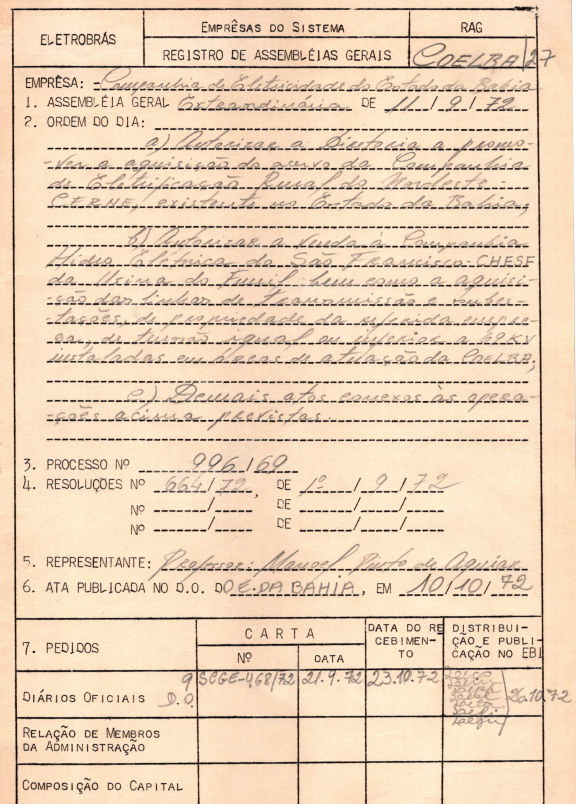 ELETROBRÁS
EMPRÊSAS DO SISTEMA
RAG
REGISTRO DE ASSEMBLÉIAS GERAIS
COELBA/27
EMPRÊSA: Companhia de Eletricidade do Estado da Bahia
1. ASSEMBLÉIA GERAL Extraordinária DE 11/9/72
2. ORDEM DO DIA:
a) Autorizar a Diretoria a promo-
-ver a aquisição do acervo da Companhia
de Eletrificação Rural do Nordeste -
CERNE, existente no Estado da Bahia;
b) Autorizar a venda à Companhia
Hidro Elétrica do São Francisco-CHESF
da Usina do Funil bem como a aquisi-
ção das linhas de transmissão e subes-
tações, de propriedade da referida empre-
sa, de tensão igual ou inferior a 69KV
instaladas em áreas de atuação da COELBA;
c) Demais atos conexos às opera-
ções acima previstas.
3. PROCESSO Nº 996/69
4. RESOLUÇÕES Nº 664/72, DE 1º/9/72
Nº / DE / /
Nº / DE / /
5. REPRESENTANTE: Professor: Manoel Pinto de Aguiar
6. ATA PUBLICADA NO D.O. DO E. DA BAHIA, EM 10/10/72
7. PEDIDOS
CARTA
Nº
DATA
DATA DO RE
CEBIMEN-
TO
DISTRIBUI-
ÇÃO E PUBLI-
CAÇÃO NO EBI
DIÁRIOS OFICIAIS 9 D.O.
SCGE-468/72
21.9.72
23.10.72
26.10.72
RELAÇÃO DE MEMBROS
DA ADMINISTRAÇÃO
COMPOSIÇÃO DO CAPITAL